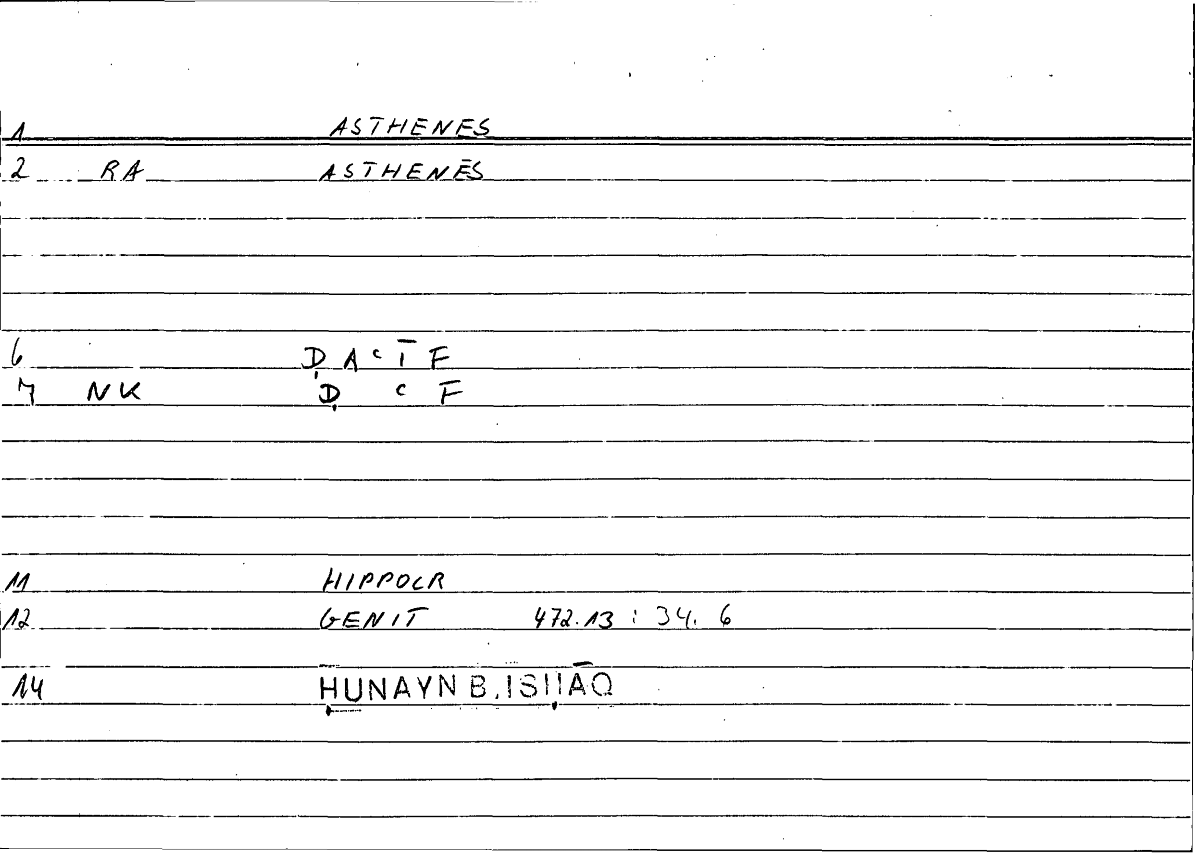 1 ASTHENES
2 RA ASTHENĒS
6 Ḍ A ʿ Ī F
7 NK Ḍ ʿ F
11 HIPPOCR
12 GENIT 472.13 : 34. 6
14 ḤUNAYN B. ISḤĀQ